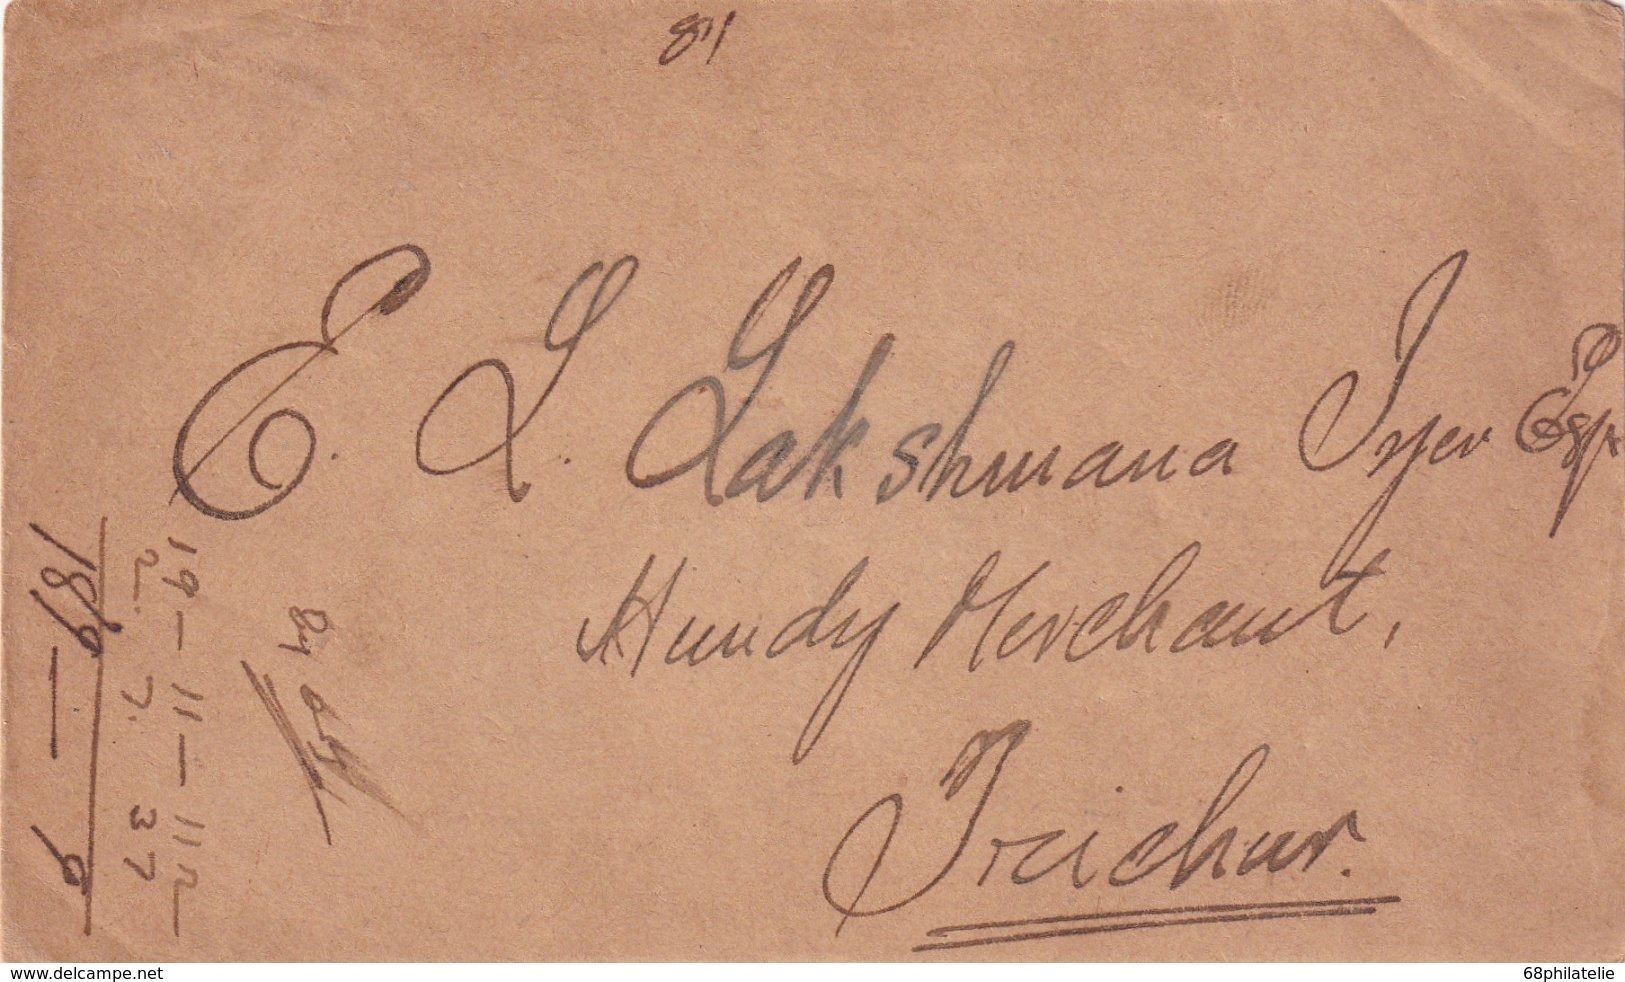 84
E. L. Lakshmana Iyer Esqr
Hundy Merchant,
Trichur.
19 — 11 — 11
2. 7. 37
189 — 9
www.delcampe.net
68philatelie